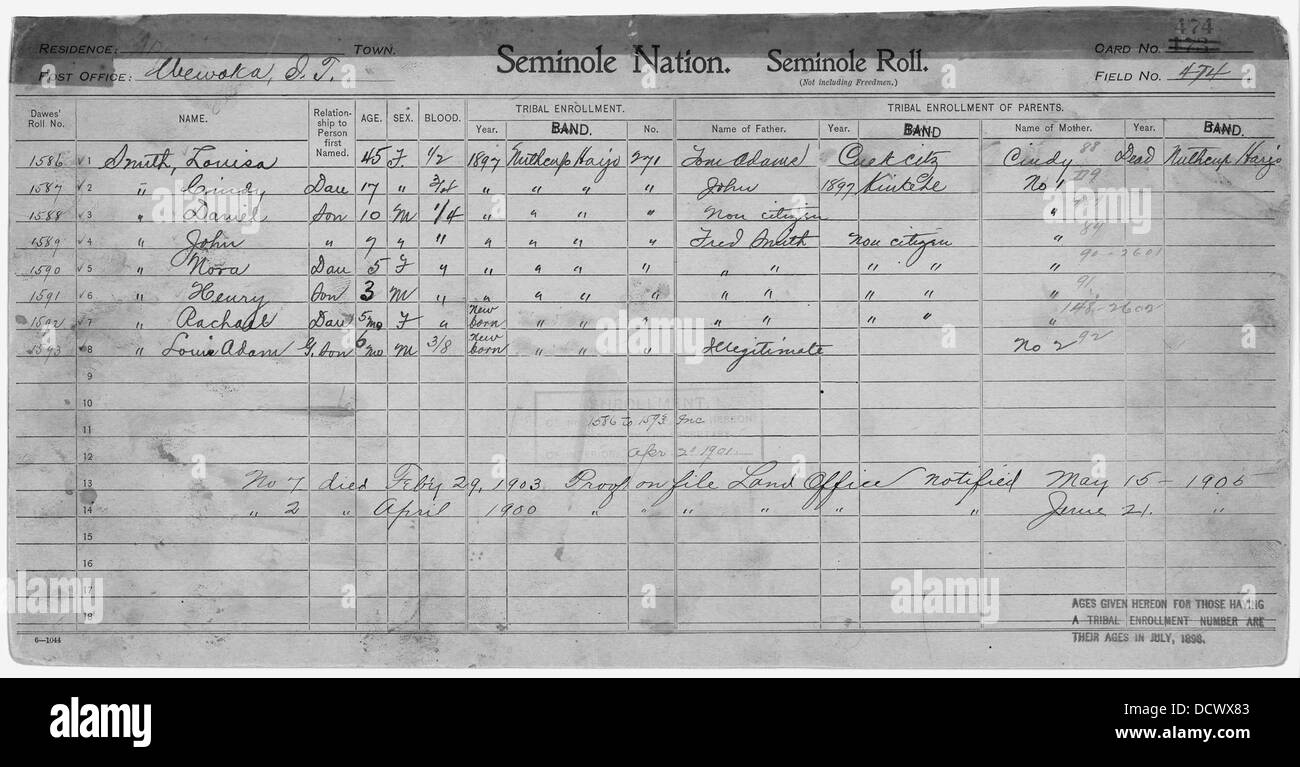 474
RESIDENCE: TOWN. Seminole Nation. Seminole Roll. CARD No. 473
POST OFFICE: Wewoka, I.T. (Not including Freedmen.) FIELD No. 474
TRIBAL ENROLLMENT. TRIBAL ENROLLMENT OF PARENTS.
Dawes' Roll No. NAME. Relationship to Person first Named. AGE. SEX. BLOOD. Year. BAND. No. Name of Father. Year. BAND Name of Mother. Year. BAND.
1586 √ 1 Smith, Louisa 45 F. 1/2 1897 Nuthcup Harjo 271 Tom Adams Creek citz Cindy 88 Dead Nuthcup Harjo
1587 √ 2 " Cindy Dau 17 " " " " " John 1897 No 1
1588 √ 3 " Daniel Son 10 M 1/4 " " " " Non citizen "
1589 √ 4 " John " 7 " " " " " " Fred Smith Non citizen "
1590 √ 5 " Nora Dau 5 F " " " " " " " " " " 90-2601
1591 √ 6 " Henry Son 3 M " " " " " " " " " " 91
1592 √ 7 " Rachael Dau 5 mo F " New born " " " " " " " " 148-2602
1593 √ 8 " Louis Adam G. Son 6 mo M 3/8 New born " " " Illegitimate No 2 92
9
10
ENROLLMENT
11 1586 to 1593 Inc
12 Apr 2 1901
13 No 7 died Feb'y 29, 1903. Proof on file Land Office notified May 15 - 1905
14 " 2 " April 1900 " " " " " " June 21. "
15
16
17
18
AGES GIVEN HEREON FOR THOSE HAVING
A TRIBAL ENROLLMENT NUMBER ARE
THEIR AGES IN JULY, 1898.
6—1044
alamy
alamy
alamy
alamy
alamy
alamy
alamy
alamy
a
a
a
a
alamy
Image ID: DCWX83
www.alamy.com